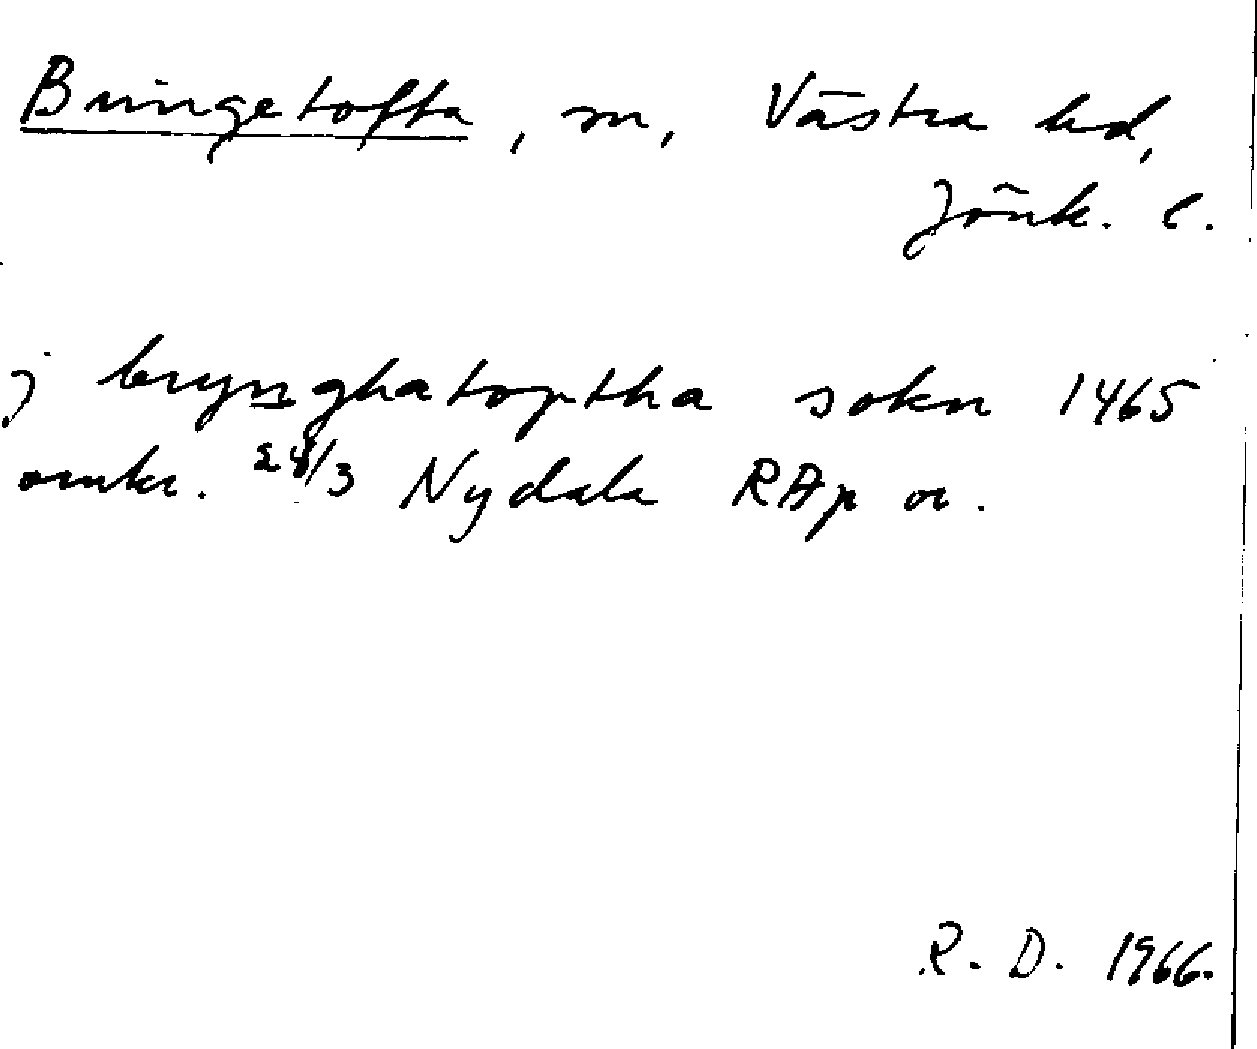 Bringetofta, sn, Västra hd,
Jönk. l.
j brynghatoptha sokn 1465
omkr. 28/3 Nydala RAp or.
R. D. 1966.